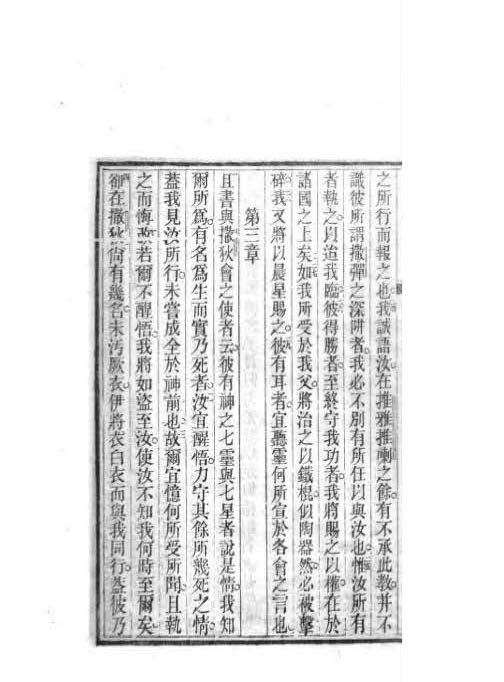 之所行而報之也我誠語汝在推雅推喇之餘有不承此教并不
識彼所謂撒彈之深阱者我必不別有所任以與汝也惟汝所有
者執之以迨我臨彼得勝者至終守我功者我將賜之以權在於
諸國之上矣如我所受於我父將治之以鐵棍似陶器然必被擊
碎我又將以晨星賜之彼有耳者宜聽靈何所宣於各會之言也
第三章
且書與撒狄會之使者云彼有神之七靈與七星者說是情我知
爾所為有名為生而實乃死者汝宜醒悟力守其餘所幾死之情
葢我見汝所行未嘗成全於神前也故爾宜憶何所受所聞且執
之而悔改若爾不醒悟我將如盜至汝使汝不知我何時至爾矣
卻在撒狄尙有幾名未汚厥衣伊將衣白衣而與我同行葢彼乃